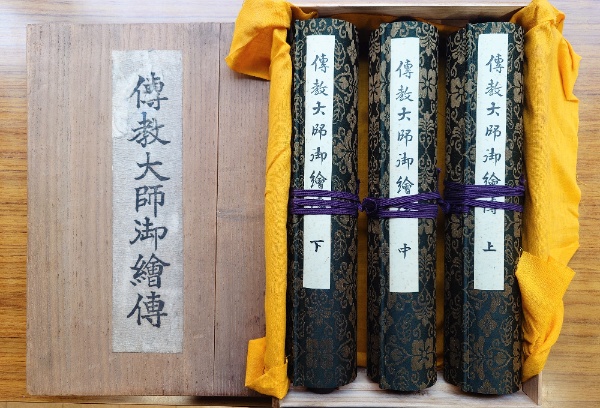 傳教大師御繪傳
傳教大師御繪傳 上
傳教大師御繪 中
傳教大師御繪 下